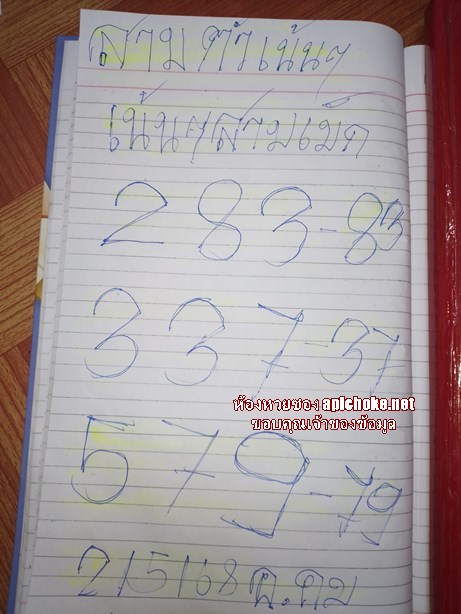 สามตัวเน้นๆ
เน้นๆสามเม็ด
283-83
337-37
ห้องหวยซอง apichoke.net
ขอบคุณเจ้าของข้อมูล
579-79
2/5/68 ผ.คม